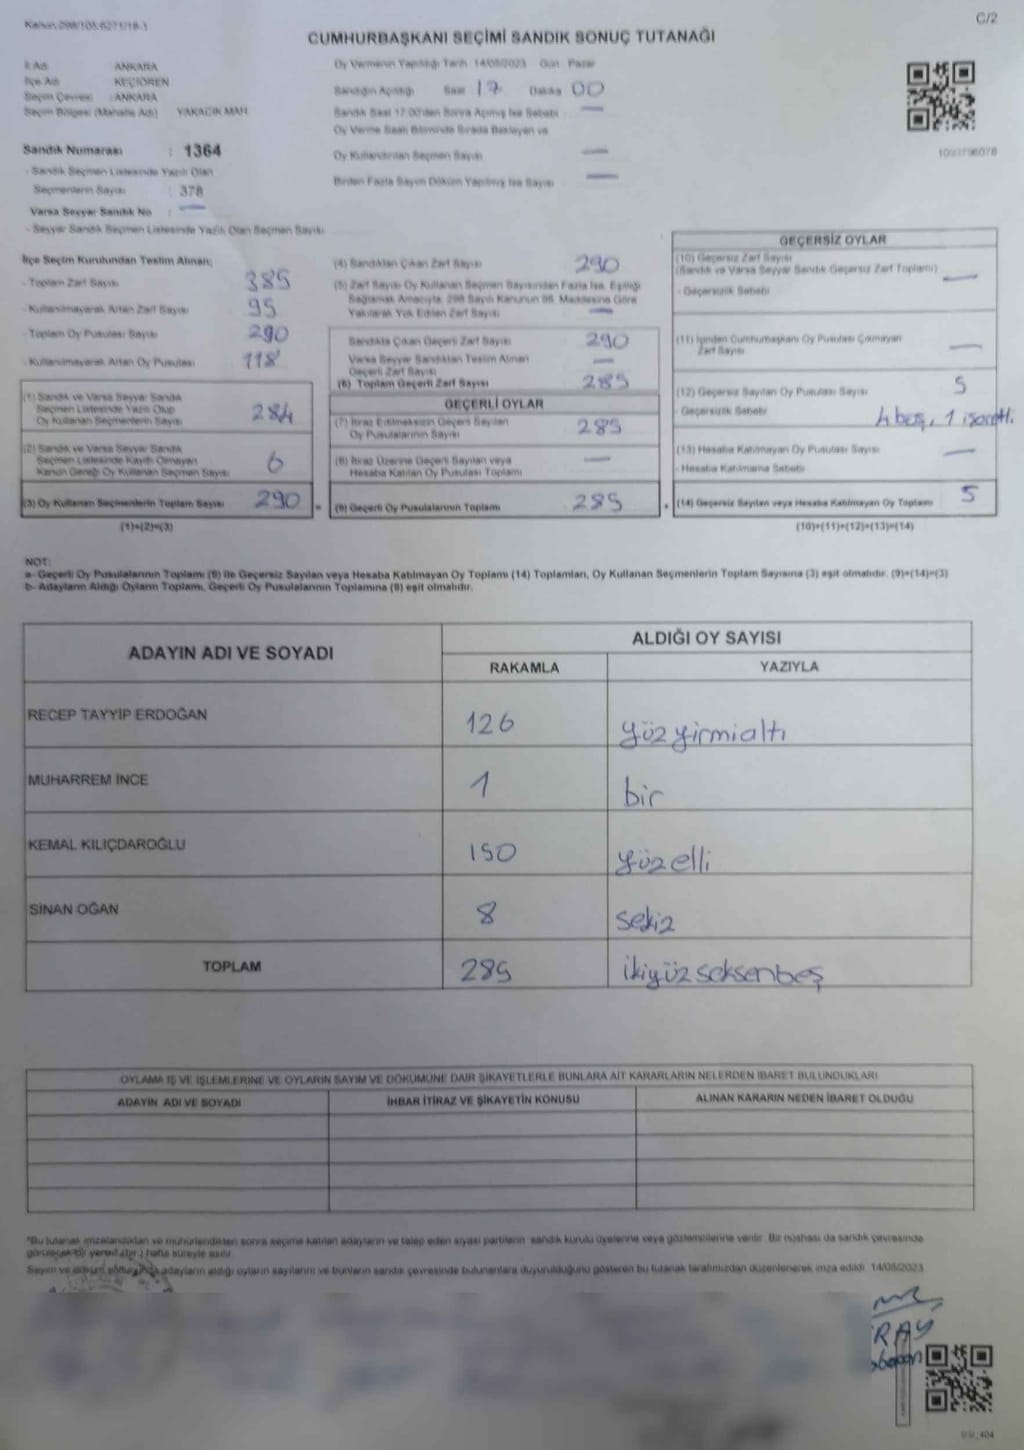 Kanun:298/105;6271/18-1
C/2
CUMHURBAŞKANI SEÇİMİ SANDIK SONUÇ TUTANAĞI
İl Adı ANKARA
İlçe Adı KEÇİÖREN
Seçim Çevresi : ANKARA
Seçim Bölgesi (Mahalle Adı) YAKACIK MAH.
Sandık Numarası : 1364
- Sandık Seçmen Listesinde Yazılı Olan
Seçmenlerin Sayısı : 378
Varsa Seyyar Sandık No : —
- Seyyar Sandık Seçmen Listesinde Yazılı Olan Seçmen Sayısı
Oy Vermenin Yapıldığı Tarih 14/05/2023 Gün Pazar
Sandığın Açıldığı Saat 17 Dakika 00
Sandık Saat 17.00'den Sonra Açılmış İse Sebebi —
Oy Verme Saati Bitiminde Sırada Bekleyen ve
Oy Kullandırılan Seçmen Sayısı —
Birden Fazla Sayım Döküm Yapılmış İse Sayısı —
İlçe Seçim Kurulundan Teslim Alınan;
- Toplam Zarf Sayısı 385
- Kullanılmayarak Artan Zarf Sayısı 95
- Toplam Oy Pusulası Sayısı 290
- Kullanılmayarak Artan Oy Pusulası 118
(1) Sandık ve Varsa Seyyar Sandık
Seçmen Listesinde Yazılı Olup
Oy Kullanan Seçmenlerin Sayısı 284
(2) Sandık ve Varsa Seyyar Sandık
Seçmen Listesinde Kayıtlı Olmayan
Kanun Gereği Oy Kullanan Seçmen Sayısı 6
(3) Oy Kullanan Seçmenlerin Toplam Sayısı 290
(1)+(2)=(3)
(4) Sandıktan Çıkan Zarf Sayısı 290
(5) Zarf Sayısı Oy Kullanan Seçmen Sayısından Fazla İse, Eşitliği
Sağlamak Amacıyla, 298 Sayılı Kanunun 98. Maddesine Göre
Yakılarak Yok Edilen Zarf Sayısı —
Sandıkta Çıkan Geçerli Zarf Sayısı 290
Varsa Seyyar Sandıktan Teslim Alınan
Geçerli Zarf Sayısı —
(6) Toplam Geçerli Zarf Sayısı 285
GEÇERLİ OYLAR
(7) İtiraz Edilmeksizin Geçerli Sayılan
Oy Pusulalarının Sayısı 285
(8) İtiraz Üzerine Geçerli Sayılan veya
Hesaba Katılan Oy Pusulası Toplamı —
= (9) Geçerli Oy Pusulalarının Toplamı 285
GEÇERSİZ OYLAR
(10) Geçersiz Zarf Sayısı
(Sandık ve Varsa Seyyar Sandık Geçersiz Zarf Toplamı) —
- Geçersizlik Sebebi
(11) İçinden Cumhurbaşkanı Oy Pusulası Çıkmayan
Zarf Sayısı —
(12) Geçersiz Sayılan Oy Pusulası Sayısı 5
- Geçersizlik Sebebi 4 boş, 1 işaretli.
(13) Hesaba Katılmayan Oy Pusulası Sayısı —
- Hesaba Katılmama Sebebi
+ (14) Geçersiz Sayılan veya Hesaba Katılmayan Oy Toplamı 5
(10)+(11)+(12)+(13)=(14)
NOT:
a- Geçerli Oy Pusulalarının Toplamı (9) ile Geçersiz Sayılan veya Hesaba Katılmayan Oy Toplamı (14) Toplamları, Oy Kullanan Seçmenlerin Toplam Sayısına (3) eşit olmalıdır. (9)+(14)=(3)
b- Adayların Aldığı Oyların Toplamı, Geçerli Oy Pusulalarının Toplamına (9) eşit olmalıdır.
ADAYIN ADI VE SOYADI ALDIĞI OY SAYISI
RAKAMLA YAZIYLA
RECEP TAYYİP ERDOĞAN 126 yüzyirmialtı
MUHARREM İNCE 1 bir
KEMAL KILIÇDAROĞLU 150 yüzelli
SİNAN OĞAN 8 sekiz
TOPLAM 285 ikiyüzseksenbeş
OYLAMA İŞ VE İŞLEMLERİNE VE OYLARIN SAYIM VE DÖKÜMÜNE DAİR ŞİKAYETLERLE BUNLARA AİT KARARLARIN NELERDEN İBARET BULUNDUKLARI
ADAYIN ADI VE SOYADI İHBAR İTİRAZ VE ŞİKAYETİN KONUSU ALINAN KARARIN NEDEN İBARET OLDUĞU
*Bu tutanak imzalandıktan ve mühürlendikten sonra seçime katılan adayların ve talep eden siyasi partilerin sandık kurulu üyelerine veya gözlemcilerine verilir. Bir nüshası da sandık çevresinde
görülecek bir yerel (bir ) hafta süreyle asılır.
Sayım ve döküm sonucunda adayların aldığı oyların sayılarını ve bunların sandık çevresinde bulunanlara duyurulduğunu gösteren bu tutanak tarafımızdan düzenlenerek imza edildi. 14/05/2023
RAY